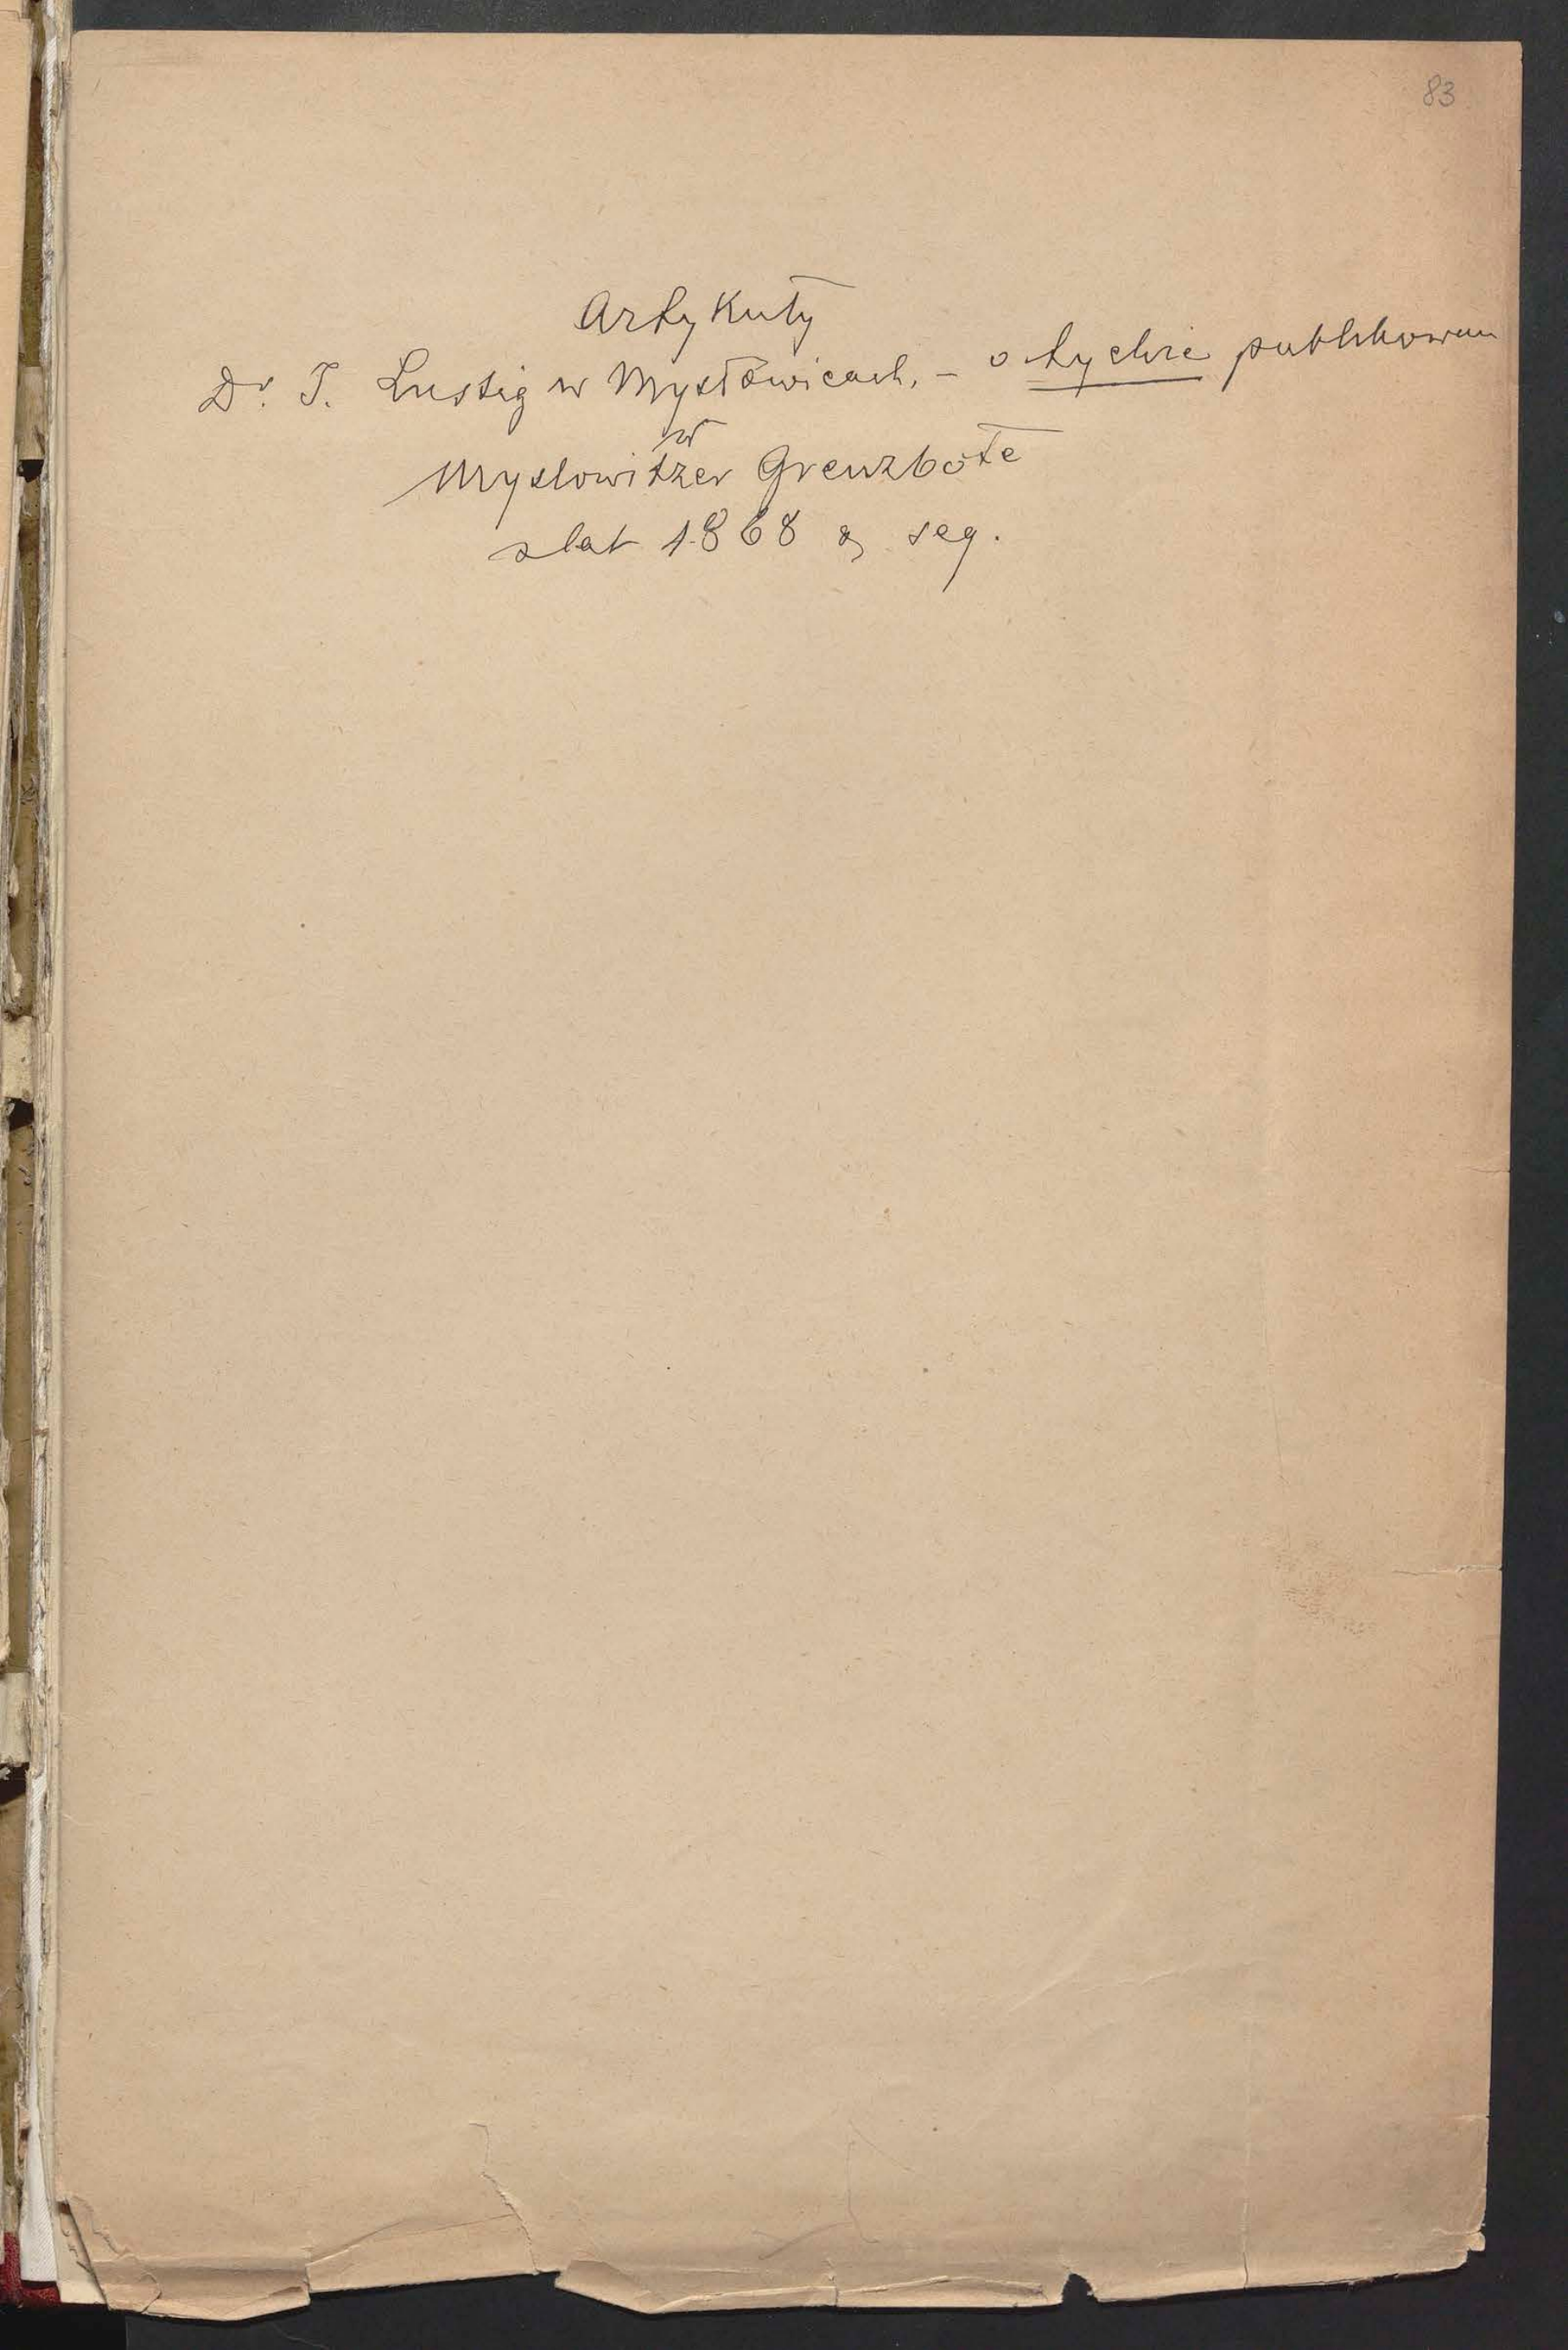 83
Artykuły
Dr. J. Lustig w Mysłowicach. - o tychże publikowan
w
Myslowitzer Grenzbote
z lat 1868 & seq.